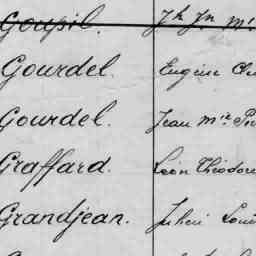 Goupil. Jh Jn M
Gourdel. Eugène
Gourdel. Jean Mie
Graffard. Léon Théodore
Grandjean. Julien Louis